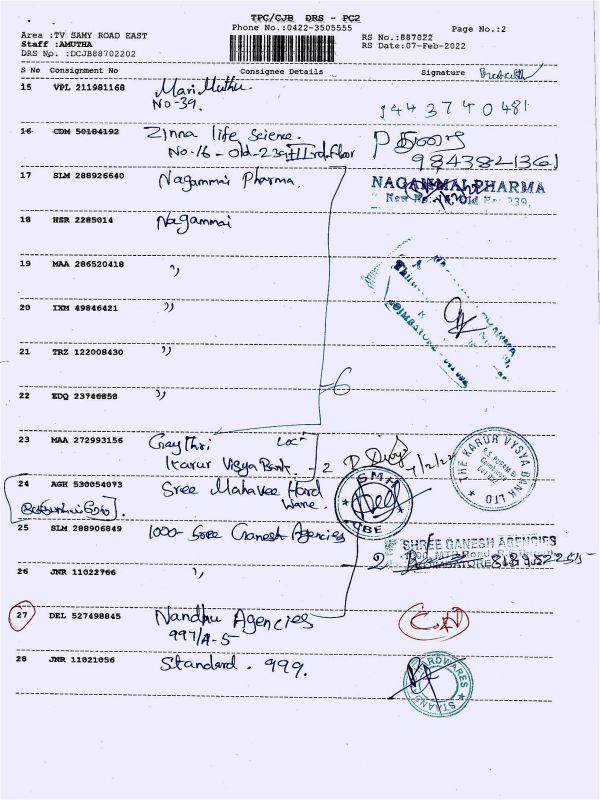 TPC/CJB DRS - PC2
Phone No.:0422-3505555
Page No.:2
Area :TV SAMY ROAD EAST
Staff :AMUTHA
DRS No. :DCJB88702202
RS No.:887022
RS Date:07-Feb-2022
S No Consignment No Consignee Details Signature
15 VPL 211981168 Mari Muthu.
No-39.
16 CDM 50184192 Zinna life Science.
No-16-Old-239 IIIrd floor
9843821361
17 SLM 288926640 Nagammai Pharma.
NAGAMMAI PHARMA
18 HSR 2285014 Nagammai
19 MAA 286520418 ,,
20 IXM 49846421 ,,
21 TRZ 122008430 ,,
6
22 EDQ 23746858 ,,
23 MAA 272993156 Gaythri
Karur Vysya Bank. - 2
7/2/22
THE KARUR VYSYA BANK LTD
24 AGH 530054073 Sree Mahavee Hard
Ware.
SMH
CBE
25 SLM 288906849 1000- Sree Ganesh Agencies
SHREE GANESH AGENCIES
26 JNR 11022766 ,, 2
27 DEL 527498845 Nandhu Agencies
997/A-5
28 JNR 11021056 Standard. 999.